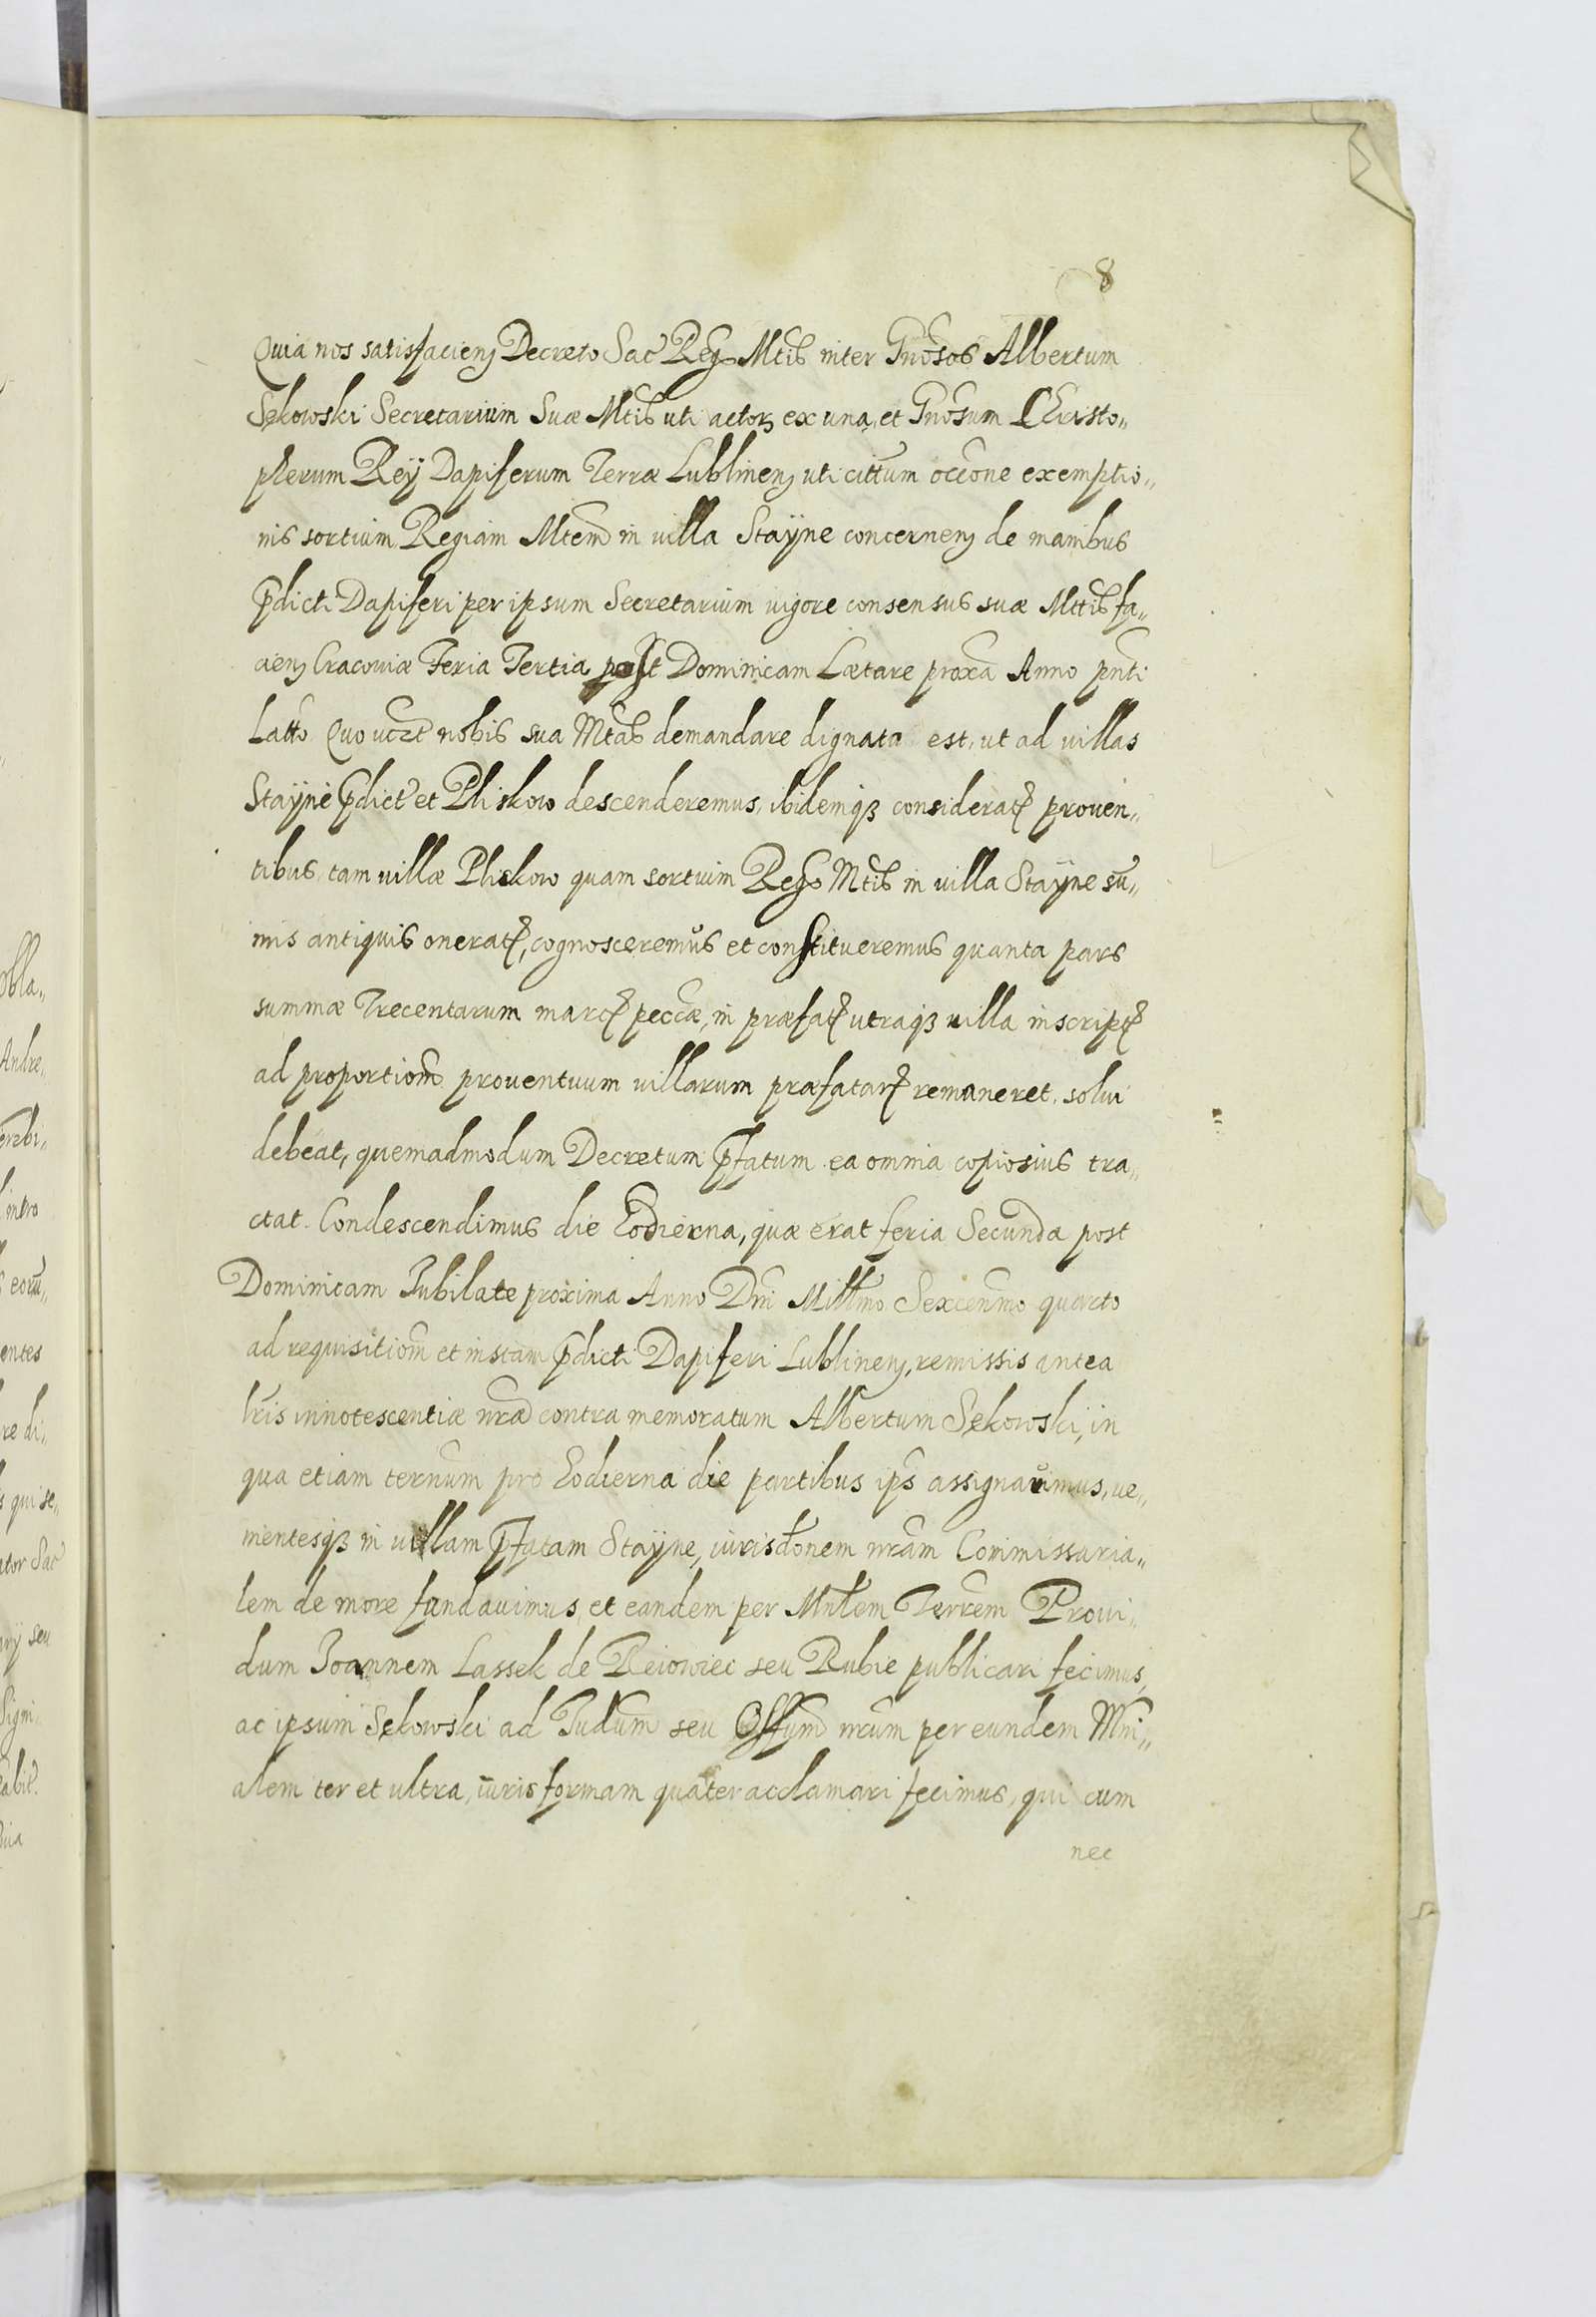 8
Quia nos satisfacien Decreto Sac Reg Mtis inter Gnosos Albertum
Sękowski Secretarium Suæ Mtis uti actor ex una, et Gnosum Christo„
pherum Reÿ Dapiferum Terræ Lublinen uti cittum occone exemptio„
nis sortium Regiam Mtem in villa Staÿne concernen de manibus
pdicti Dapiferi per ipsum Secretarium vigore consensus suæ Mttis fa„
cien Cracoviæ Feria Tertia post Dominicam Lætare proxa Anno pnti
Latto Quo vczt nobis sua Mtas demandare dignata est, ut ad villas
Staÿne pdict et Pliskow descenderemus, ibidemq3 considerat proven„
tibus, tam villæ Pliskow quam sortium Regs Mtis in villa Staÿne su„
mis antiquis onerat, cognosceremus et constitueremus quanta pars
summæ Trecentarum marc peccæ, in præfat utraq3 villa inscript
ad proportiom proventuum villarum præfatar remaneret, solvi
debeat, quemadmodum Decretum pfatum ea omnia copiosius tra„
ctat. Condescendimus die hodierna, quæ erat feria Secunda post
Dominicam Jubilate proxima Anno Dni Millmo Sexcenmo quarto
ad requisitiom et instam pdicti Dapiferi Lublinen, remissis antea
lris innotescentiæ nræ contra memoratum Albertum Sękowski, in
qua etiam ternum pro hodierna die partibus ips assignavimus, ve„
nientesq3 in villam pfatam Staÿne, iurisdonem nram Commissaria„
lem de more fundavimus, et eandem per Mnlem Terrem Provi„
dum Joannem Lassek de Reiowiec seu Rubie publicari fecimus,
ac ipsum Sękowski ad Judum seu Offum nrum per eundem Mni„
alem ter et ultra, iuris formam quater acclamari fecimus, qui cum
nec